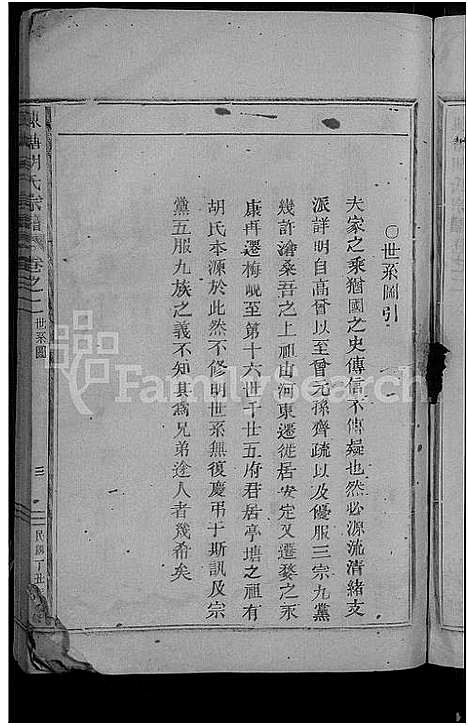 ○世系圖引
夫家之乘猶國之史傳信不傳疑也然必源流清緒支
派詳明自高曾以至曾元孫齊疏以及優服三宗九黨
幾許滄桑吾之上祖山河東遷徙居安定又遷婺之永
康再遷梅峴至第十六世千廿五府君居亭塘之祖有
胡氏本源於此然不修明世系無復慶弔于斯訊及宗
黨五服九族之義不知其為兄弟途人者幾希矣
胡氏宗譜 卷之二 世系圖
三
民國丁丑
FamilySearch